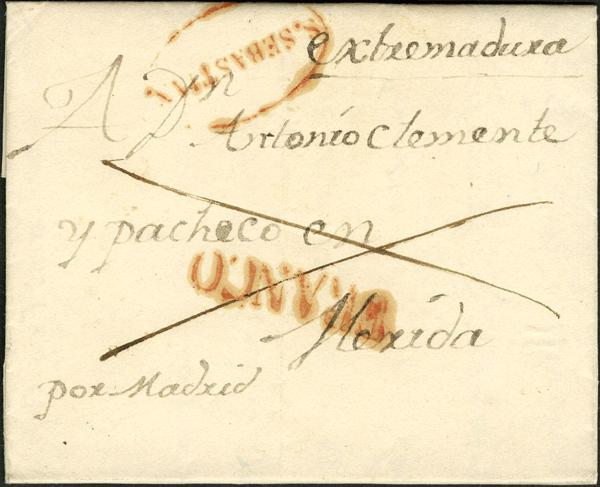 S. SEBASTIAN
extremadura
A Dn
Antonio Clemente
y pacheco en
FRANCO
Merida
por Madrid